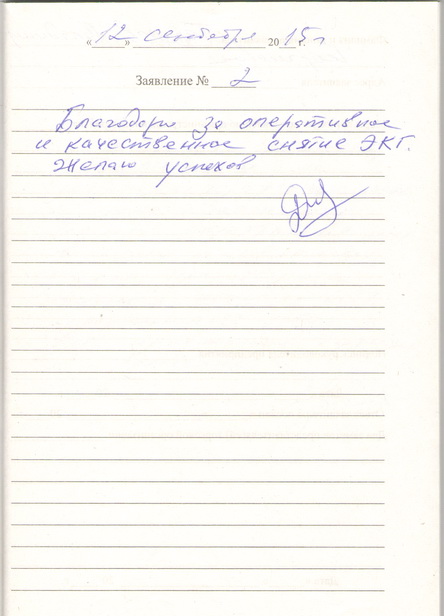 «12» сентября 2015 г.
Заявление № 2
Благодарю за оперативное
и качественное снятие ЭКГ.
Желаю успехов